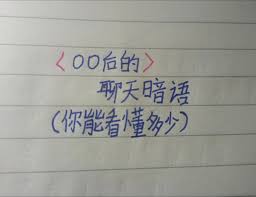 <00后的>
聊天暗语
(你能看懂多少)